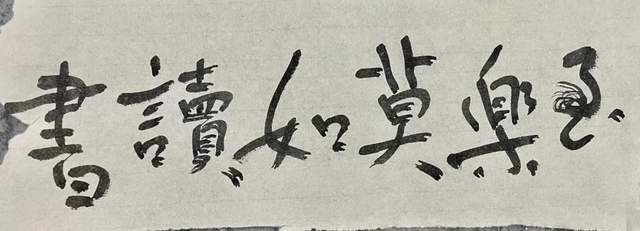 至樂莫如讀書